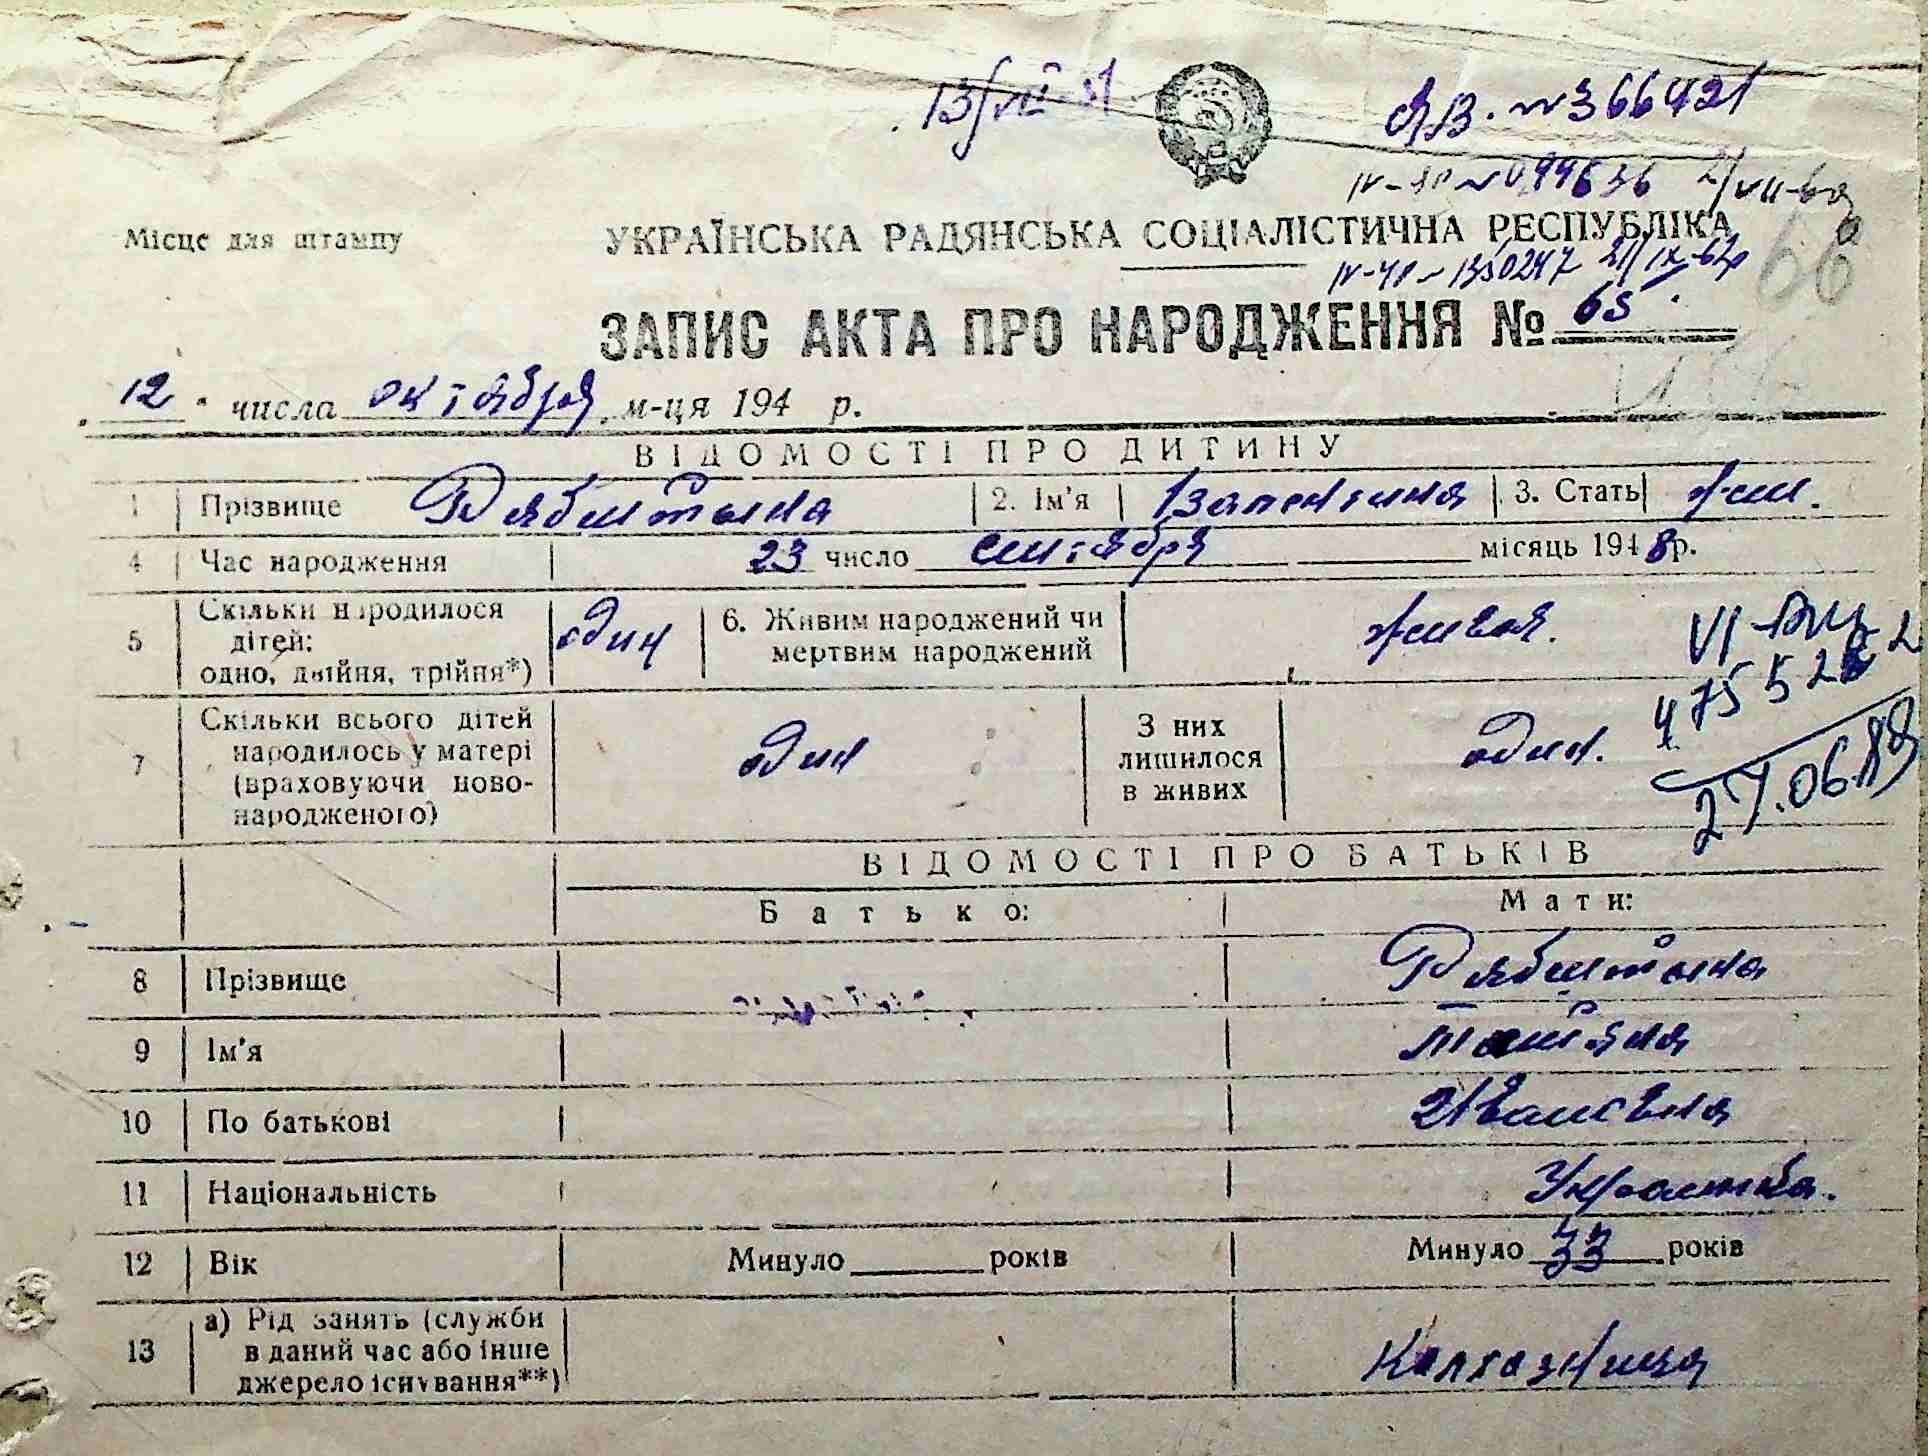 13/VII-51
ЯВ. №366421
IV-ЯР №099636 21/VII-60
УКРАЇНСЬКА РАДЯНСЬКА СОЦІАЛІСТИЧНА РЕСПУБЛІКА
Місце для штампу
21/IX-62р
66
ЗАПИС АКТА ПРО НАРОДЖЕННЯ № 65
12 числа октября м-ця 194 р.
ВІДОМОСТІ ПРО ДИТИНУ
1 Прізвище 2. Ім'я Валентина 3. Стать жен.
4 Час народження 23 число сентября місяць 1948 р.
5 Скільки народилося дітей: одно, двійня, трійня*) один 6. Живим народжений чи мертвим народжений живая.
7 Скільки всього дітей народилось у матері (враховуючи новонародженого) один З них лишилося в живих один.
27.06.89
ВІДОМОСТІ ПРО БАТЬКІВ
Батько: Мати:
8 Прізвище
9 Ім'я Татьяна
10 По батькові Ивановна
11 Національність Украинка.
12 Вік Минуло років Минуло 33 років
13 а) Рід занять (служби в даний час або інше джерело існування**) Колхозница